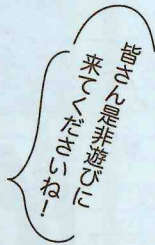 皆さん是非遊びに
来てくださいね！